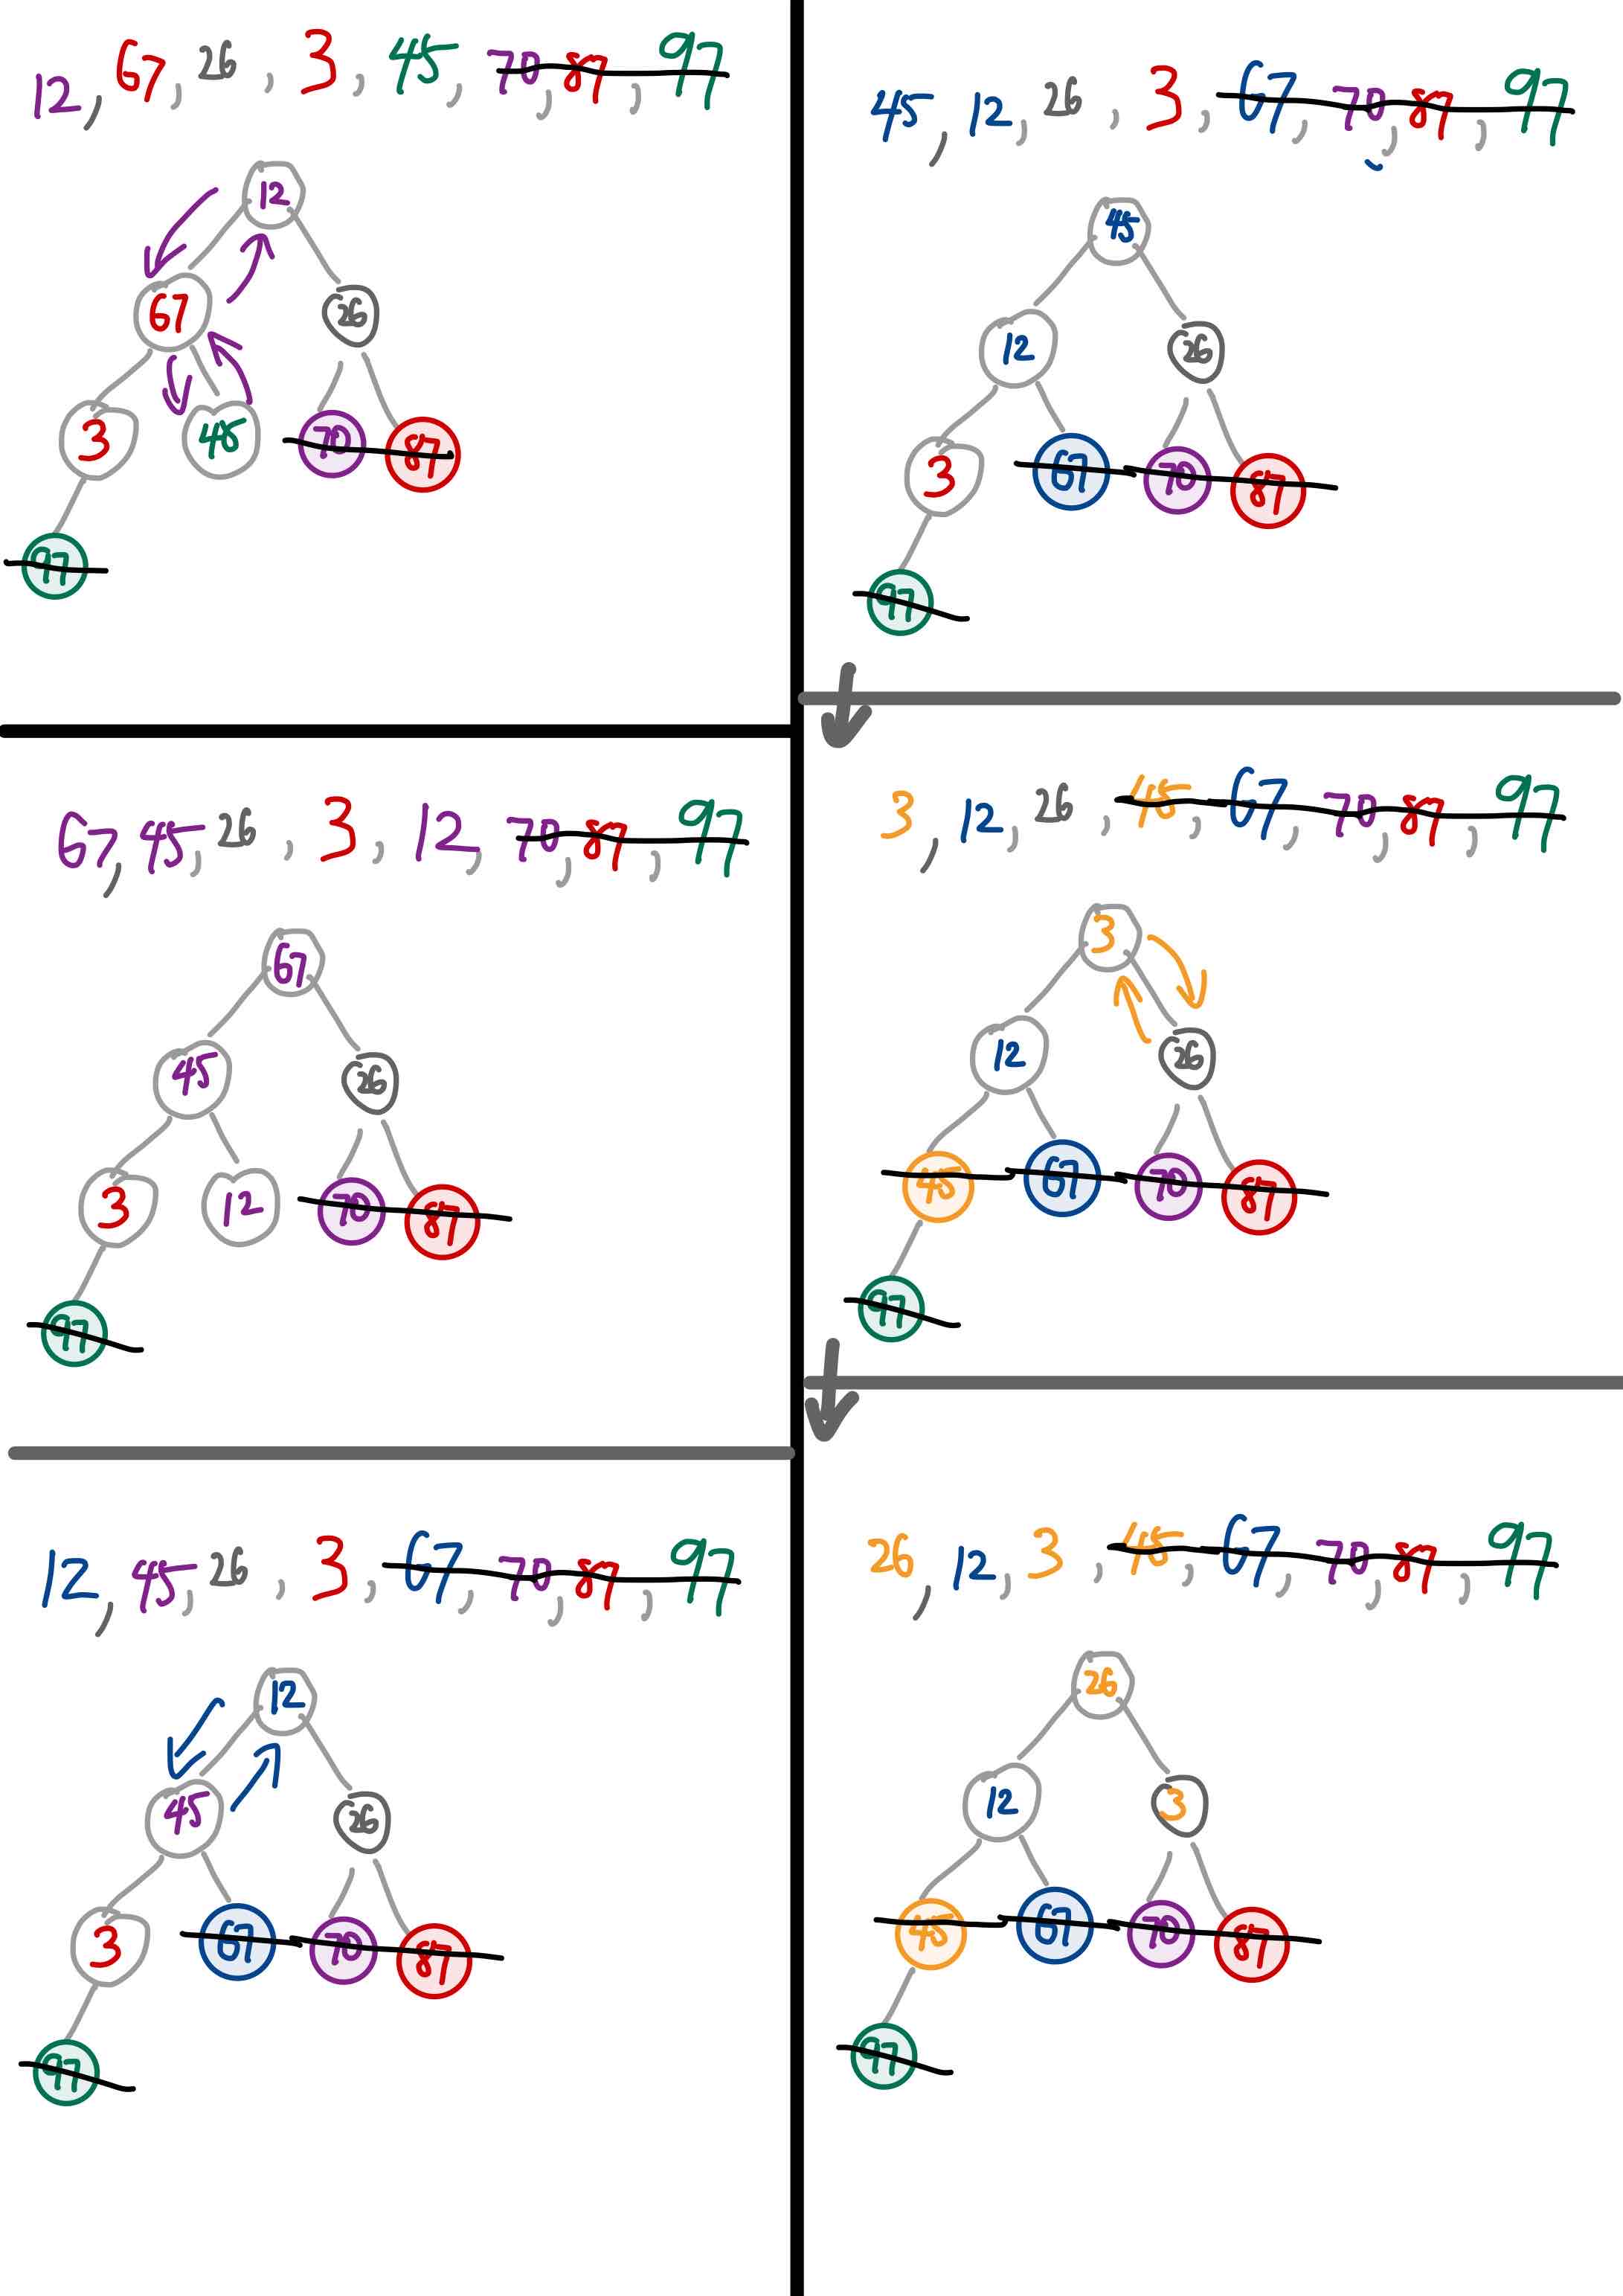 12, 67, 26, 3, 45, 70, 87, 97
12
67 26
3 45 70 87
97
67, 45, 26, 3, 12, 70, 87, 97
67
45 26
3 12 70 87
97
12, 45, 26, 3, 67, 70, 87, 97
12
45 26
3 67 70 87
97
45, 12, 26, 3, 67, 70, 87, 97
45
12 26
3 67 70 87
97
3, 12, 26, 45, 67, 70, 87, 97
3
12 26
45 67 70 87
97
26, 12, 3, 45, 67, 70, 87, 97
26
12 3
45 67 70 87
97